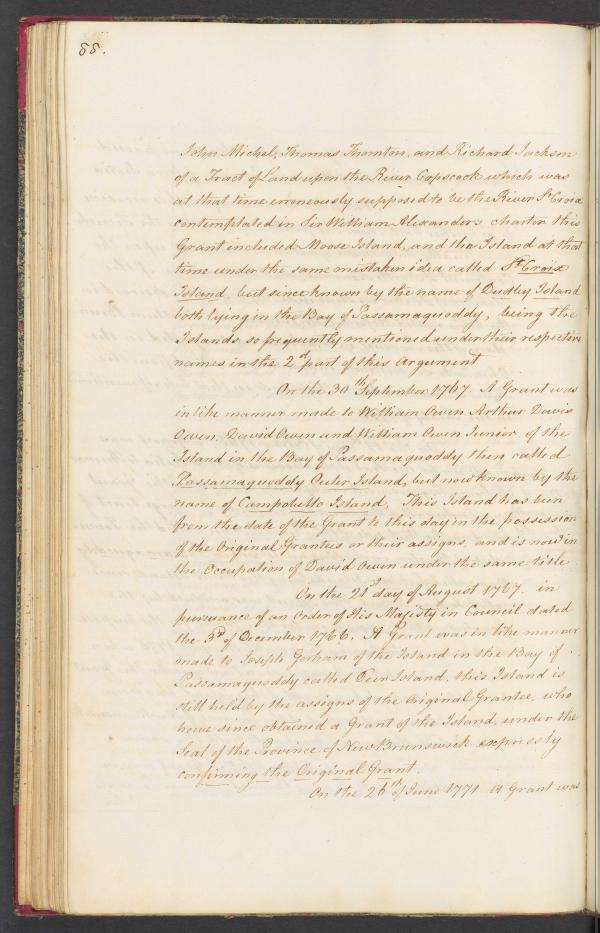 88.
John Michel, Thomas Thornton, and Richard Jackson
of a Tract of Land upon the River Copscock which was
at that time erroneously supposed to be the River St Croix
contemplated in Sir William Alexanders charter this
Grant included Moose Island, and the Island at that
time under the same mistaken idea called St Croix
Island, but since known by the name of Dudley Island
both lying in the Bay of Passamaquoddy, being the
Islands so frequently mentioned under their respective
names in the 2d part of this argument
On the 30th September 1767. A Grant was
in like manner made to William Owen Arthur Davis
Owen, David Owen and William Owen Junior of the
Island in the Bay of Passamaquoddy then called
Passamaquoddy Outer Island, but now known by the
name of Campobello Island, This Island has been
from the date of the Grant to this day in the possession
of the Original Grantees or their assigns, and is now in
the Occupation of David Owen under the same title
On the 21st day of August 1767. in
pursuance of an Order of His Majesty in Council dated
the 3d of December 1766. A Grant was in like manner
made to Joseph Gorham of the Island in the Bay of
Passamaquoddy called Deer Island, this Island is
still held by the assigns of the Original Grantee, who
have since obtained a Grant of the Island, under the
Seal of the Province of New Brunswick expressly
confirming the Original Grant.
On the 26th of June 1771 A Grant was